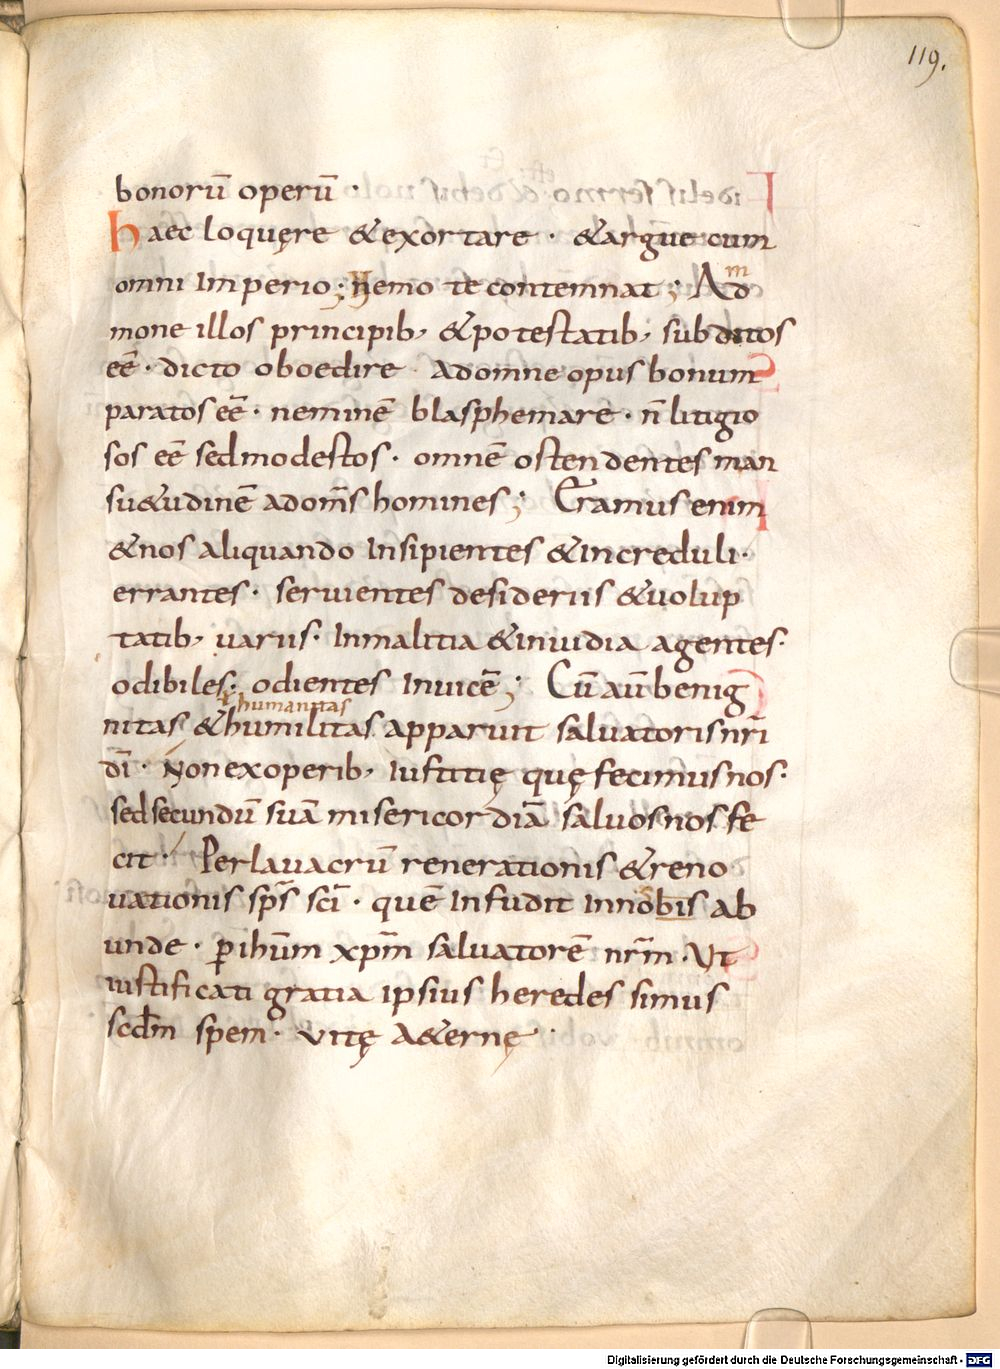 119.
bonorū operū ·
haec loquęre & exortare · & argūe cum
omni Imperio; Nemo te contemnat; Ad
m
mone illos principib; & potestatib; subditos
eē · dicto oboedire Ad omne opus bonum
paratos eē · neminē blasphemare · n̄ litigio
sos eē sed modestos · omnē ostendentes man
su&udinē ad om̄s homines; Eramus enim
& nos aliquando Insipientes & increduli ·
errantes · seruientes desideriis & uolup
tatib; uariis · In malitia & inuidia agentes ·
odibiles · odientes Inuicē; Cū aū benig
humanitas
nitas & humilitas apparuit saluatoris nr̄i
dī · Non ex operib; Iustitię quę fecimus nos ·
sed secundū suā misericordiā saluos nos fe
cit · Per lauacrū renerationis & reno
uationis sp̄s sc̄i · quē Infudit In nobis ab
unde · ꝑ ihūm xp̄m saluatorē nr̄m · Ut
iustificati gratia ipsius heredes simus
scdm̄ spem · vitę A&ernę ·
Digitalisierung gefördert durch die Deutsche Forschungsgemeinschaft - DFG